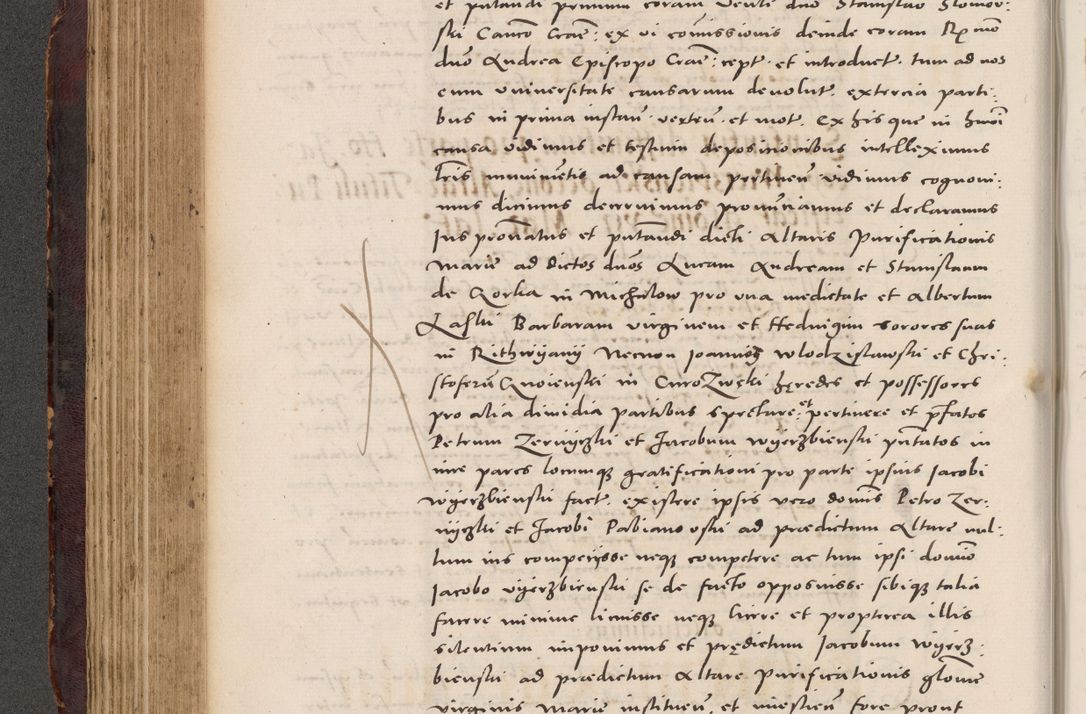 et pntandi primum coram venli dno Stanislao Slomov:
ski Canco Craen: ex vi comissionis deinde coram Rmo
dno Andrea Episcopo Craen: cept: et introduct. tum ad nos
cum universitate causarum devolut. ex tercia parti:
bus in prima instan: verten. et mot. Ex his que in hmoi
causa vidimus et testium depositionibus intelleximus
Lris munimetis ad causam pertinen vidimus cognovi:
mus dicimus decrevimus pronunciamus et declaramus
Jus pronatus et pntandi dicti Altaris Purificationis
Marie ad dictos dnos Lucam Andream et Stanislaum
de Gorka in Michalow pro una medietate et Albertum
Laski Barbaram virginem et Hedvigim sorores suas
in Rithwyany Necnon Joannem Wlodzislawski et Chri:
stoferu Gnoienski in CuroZwęki hęredes et possessores
pro alia dimidia partibus spectare et pertinere et pfatos
Petrum Zernyczki et Jacobum wyerzbienski pntatos in
vire pares locumq gratificationi pro parte ipsius Jacobi
wyerzbienski fact. existere ipsis vero domis Petro Zer:
nyczki et Jacobi Pabianowski ad prædictum Altare nul:
lum ius competijsse neq competere ac tum ipsi domino
Jacobo vyerzbienski se de facto opposuisse sibiq talia
facere minime licuisse neq licere et propterea illis
silentium imponimus et prędictum Jacobum wyerz:
bienski ad prædictum Altare purificationis glome
virginis Marie instituen. et investien fore prout